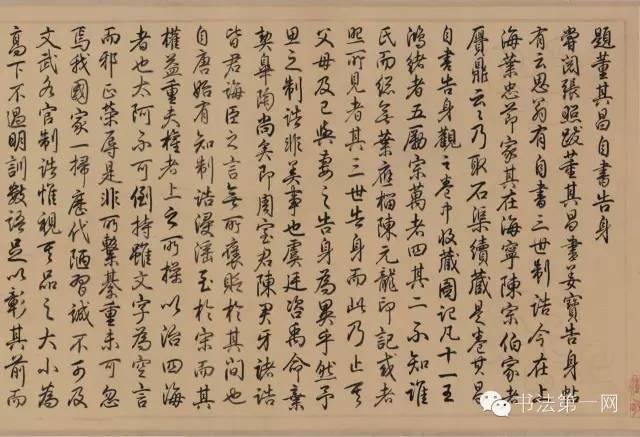 題董其昌自書告身
嘗閱張照跋董其昌書姜寶告身帖
有云思翁有自書三世制誥今在上
海葉忠節家其在海寧陳宗伯家者
贋鼎云云乃取石渠續藏是卷其昌
自書告身觀之卷中收藏圖記凡十一王
鴻緒者五勵宗萬者四其二不知誰
氏而總無葉應榴陳元龍印記或者
照所見者其三世告身而此乃止其
父母及已與妻之告身為異乎然予
思之制誥非美事也虞廷咨禹命棄
契皋陶尚矣即周室君陳君牙諸誥
皆君誨臣之言無所褒貶於其間也
自唐始有知制誥浸淫至於宋而其
權益重夫權者上之所操以治四海
者也太阿不可倒持雖文字為空言
而邪正榮辱是非所繫綦重未可忽
焉我國家一掃歷代陋習誠不可及
文武各官制誥惟視其品之大小為
高下不過明訓數語足以彰其前而
書法第一网